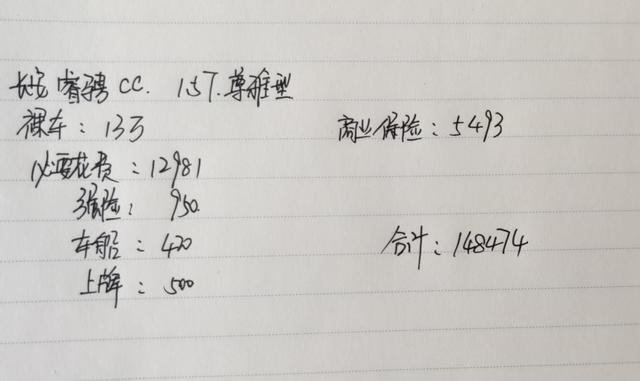 长安睿骋CC. 1.5T.尊雅型
裸车：13万
商业保险：5493
必要花费：12981
强险：950
车船：420
合计：148474
上牌：500